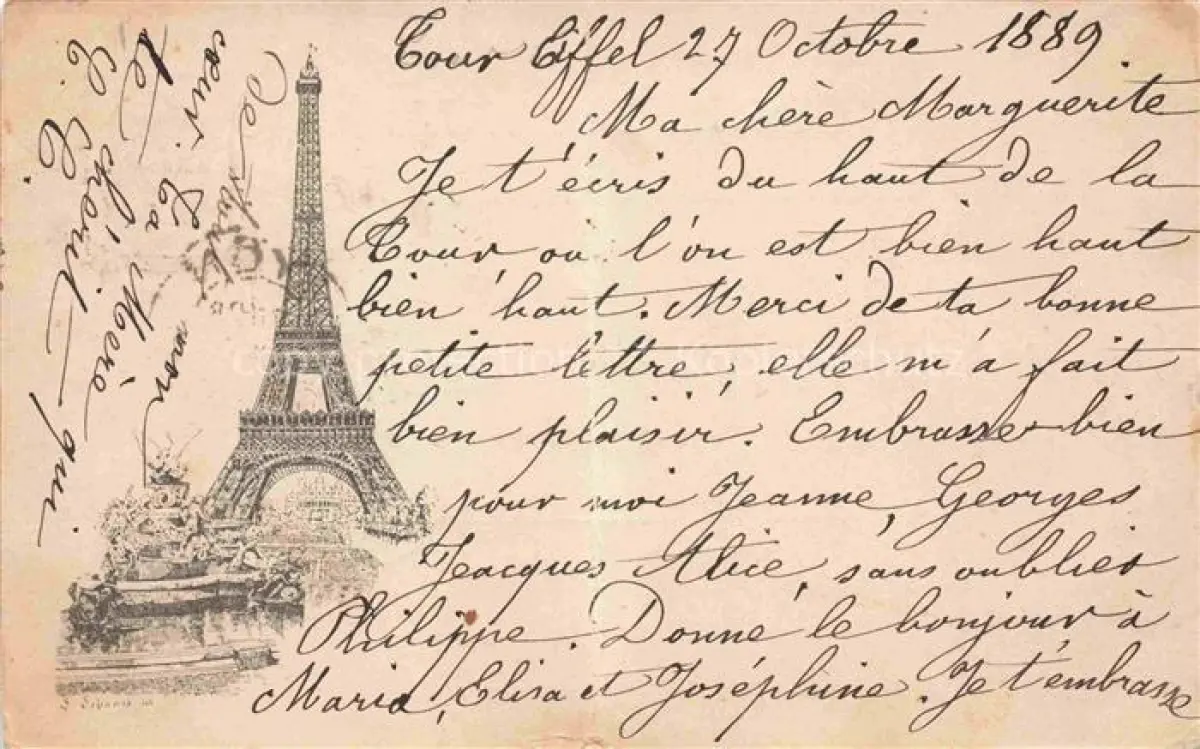 Tour Eiffel 27 Octobre 1889.
Ma chère Marguerite
Je t'écris du haut de la
Tour, où l'on est bien haut
bien haut. Merci de ta bonne
petite lettre, elle m'a fait
bien plaisir. Embrasse bien
pour moi Jeanne, Georges
Jacques Alice, sans oublier
Philippe. Donne le bonjour à
Maria, Elisa et Joséphine. Je t'embrasse
de tout mon
coeur. Ta Mère qui
te chérit